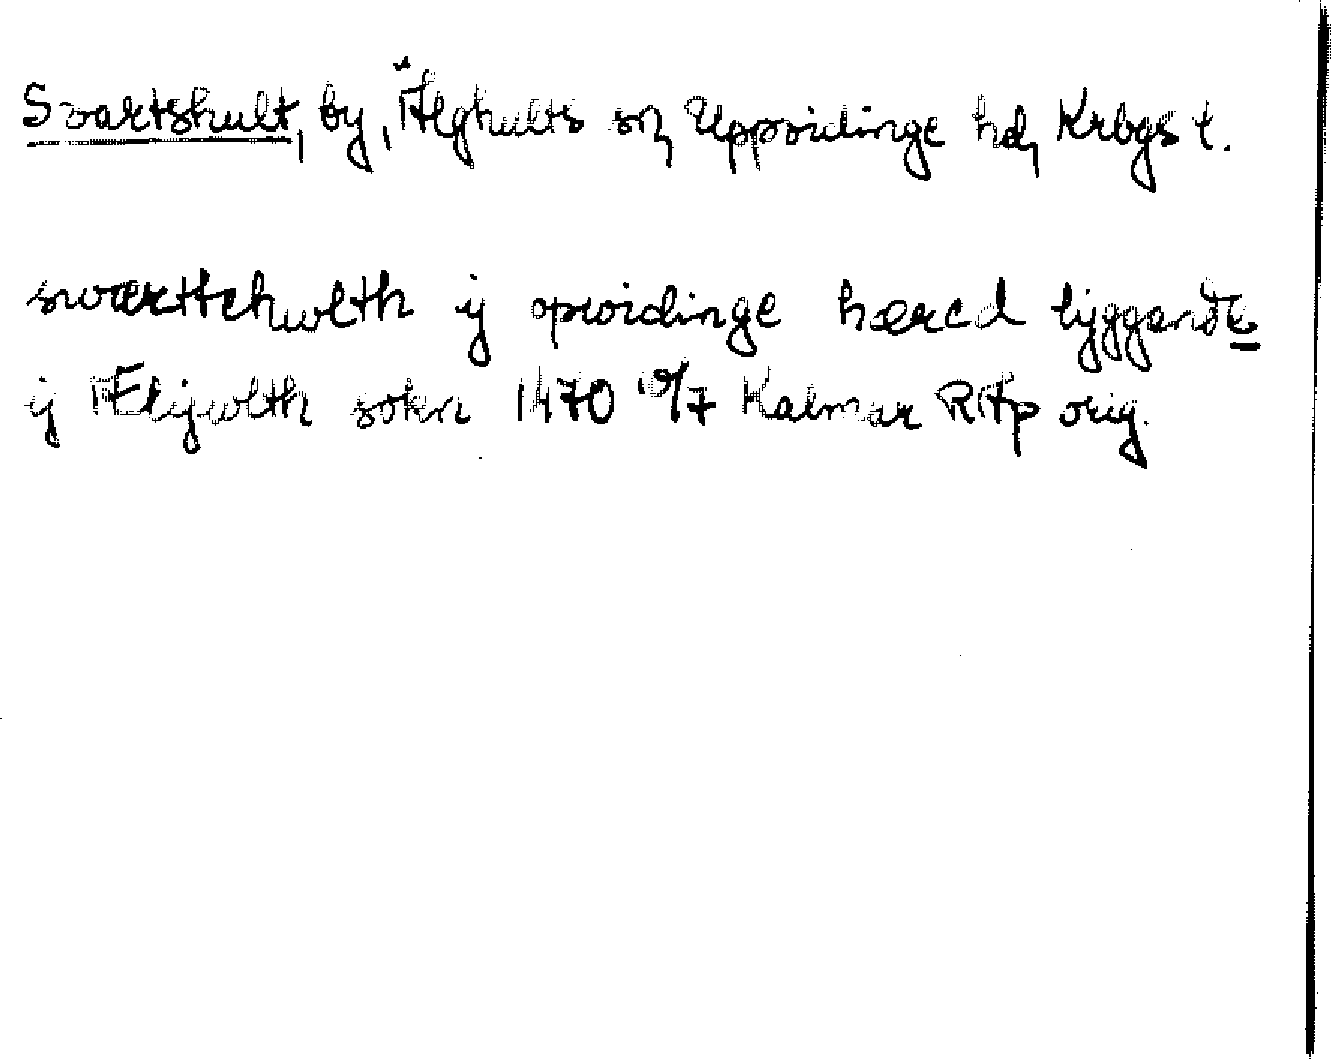 Svartshult, by, Älghults sn, Uppvidinge hd, Krbgs l.
swærttehwlth ij opwidinge hæred lyggandes
ij Ælijwlth sokn 1470 10/7 Kalmar RAp orig.